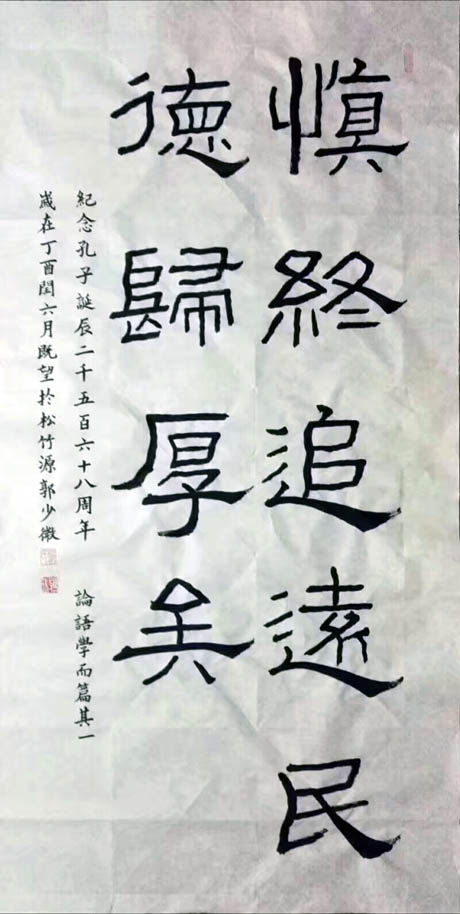 慎終追遠民
德歸厚矣
紀念孔子誕辰二千五百六十八周年 論語學而篇其一
歲在丁酉閏六月既望於松竹源郭少徽